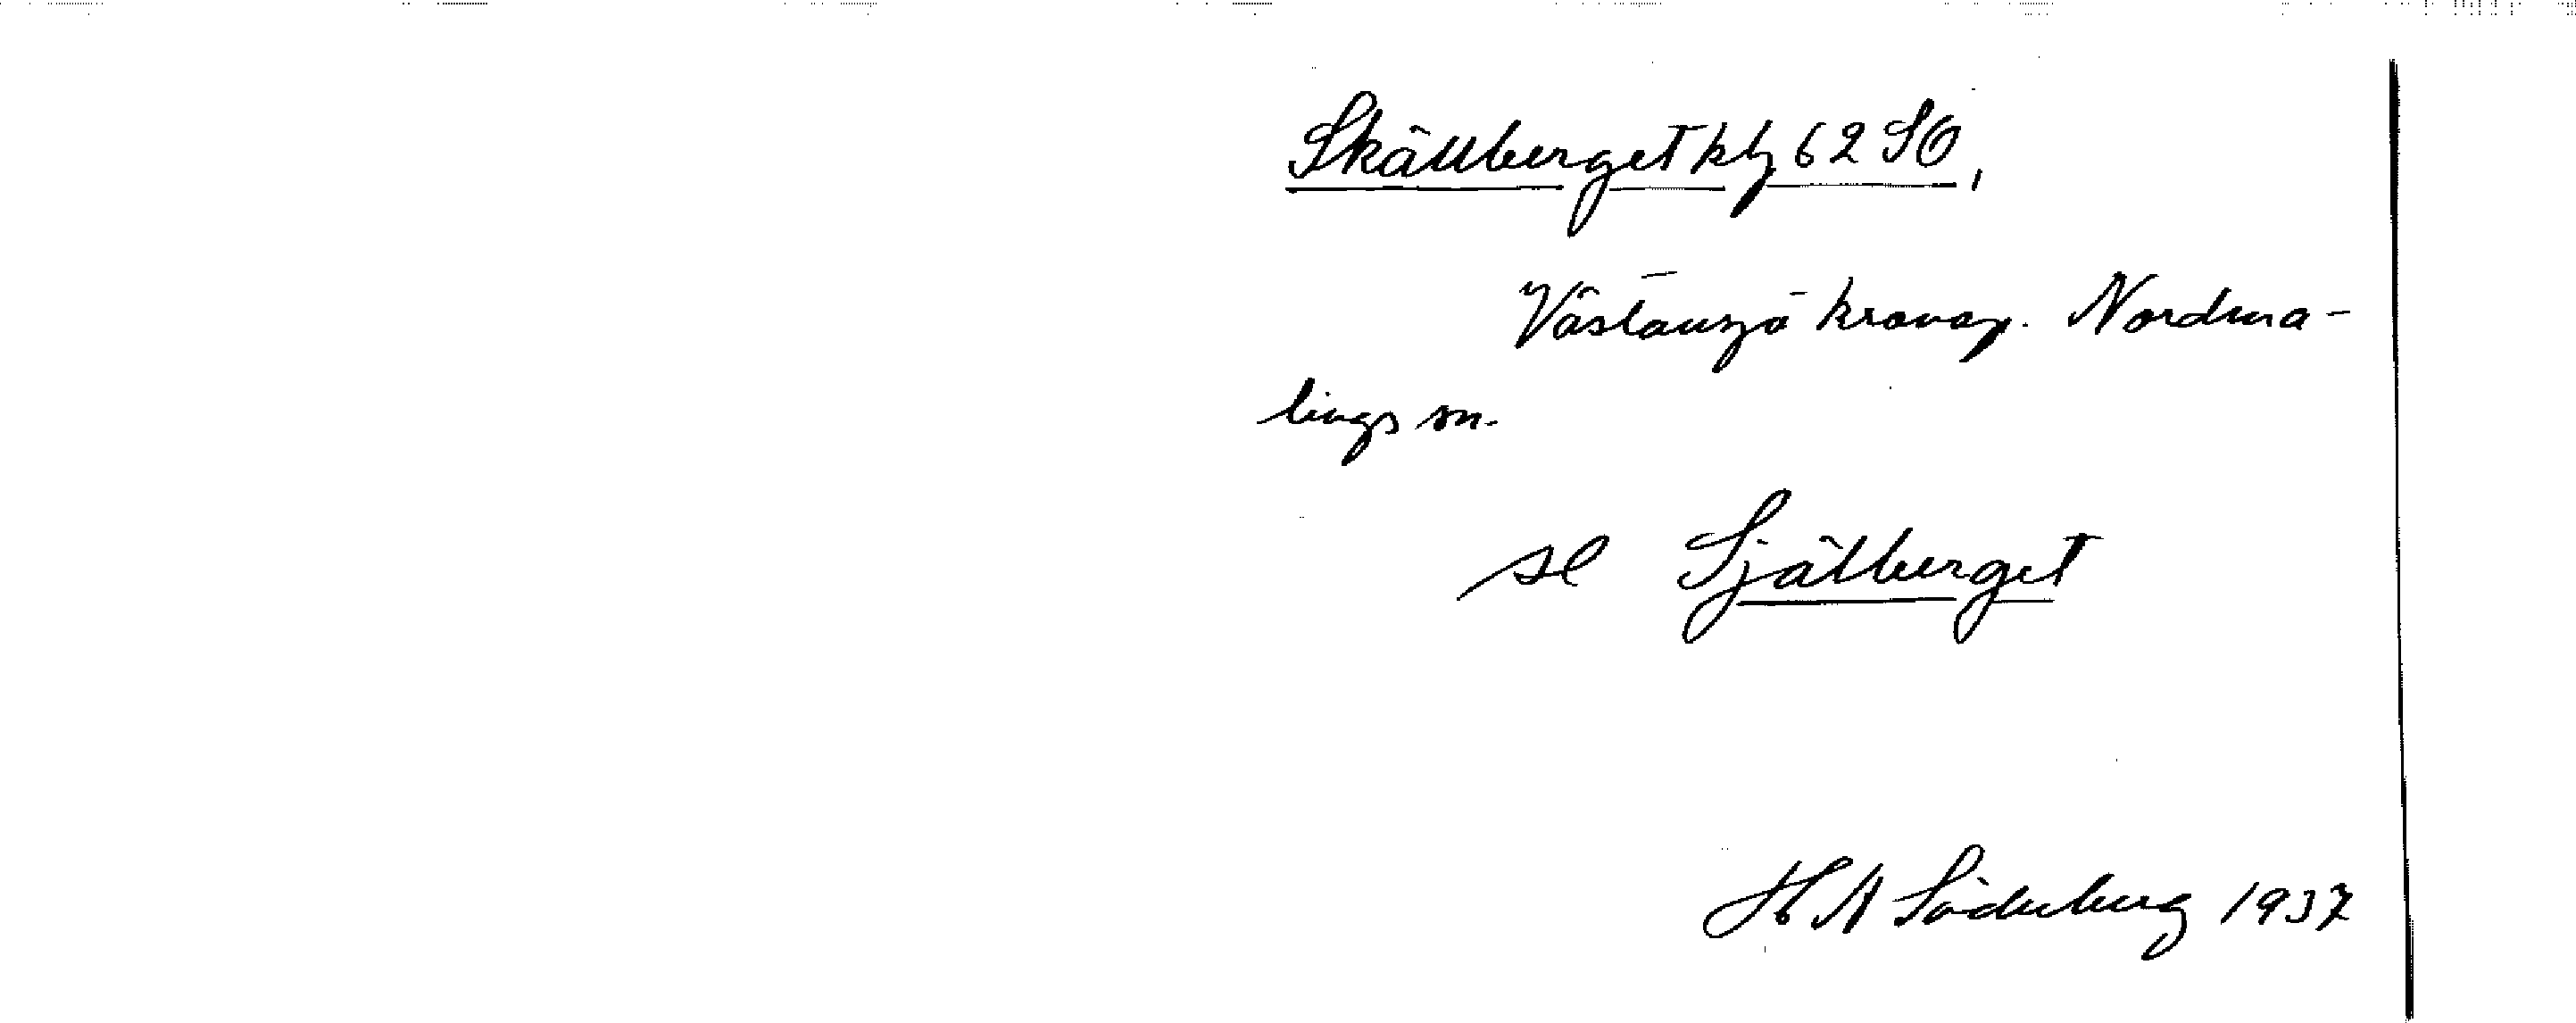 Skällberget kbl 62 SO,
Västansjö kronop. Nordma-
lings sn.
se Själberget
H A Söderberg 1937